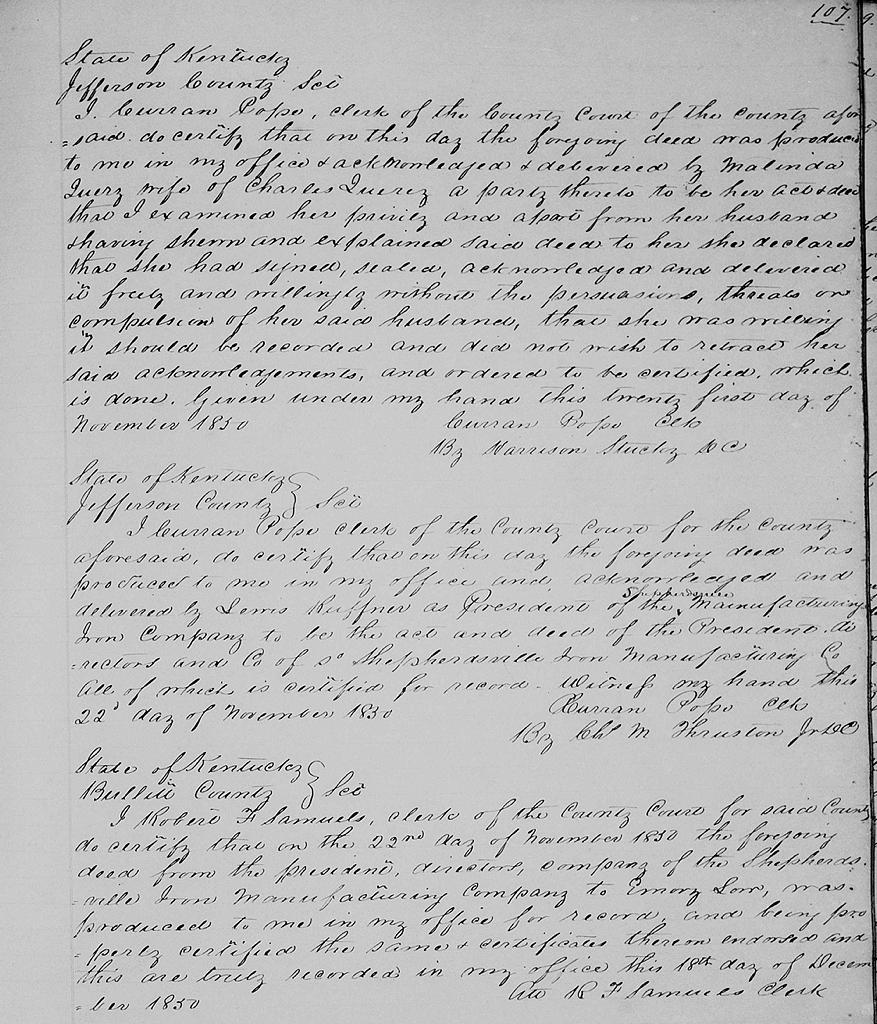 107.
State of Kentucky
Jefferson County Sct
I. Curran Pope, clerk of the County Court of the county afore
=said do certify that on this day the foregoing deed was produced
to me in my office & acknowledged & delivered by Malinda
Querz wife of Charles Querez a party thereto to be her act & deed
that I examined her privily and apart from her husband
& having shewn and explained said deed to her she declared
that she had signed, sealed, acknowledged and delivered
it freely and willingly without the persuasions, threats or
compulsion of her said husband, that she was willing
it should be recorded and did not wish to retract her
said acknowledgements, and ordered to be certified, which
is done. Given under my hand this twenty first day of
November 1850 Curran Pope Clk
By Harrison Stucky DC
State of Kentucky
Jefferson County } Sct
I Curran Pope clerk of the County Court for the County
aforesaid, do certify that on this day the foregoing deed was
produced to me in my office and acknowledged and
delivered by Lewis Ruffner as President of the Shepherdsville Mainufacturing
Iron Company to be the act and deed of the President. di
=rectors and Co of sd Shepherdsville Iron Manufacturing Co
All of which is certified for record. Witness my hand this
22d day of November 1850 Curran Pope Clk
By Chs M Thruston Jr DC
State of Kentucky
Bullitt County } Sct
I Robert F Samuels, clerk of the County Court for said County
do certify that on the 22nd day of November 1850 the foregoing
deed from the president, directors, company of the Shepherds-
=ville Iron Manufacturing Company to Emory Low, was.
produced to me in my office for record, and being pro
=perly certified the same & certificates thereon endorsed and
this are truly recorded in my office this 18th day of Decem
=ber 1850 Att R F Samuels Clerk